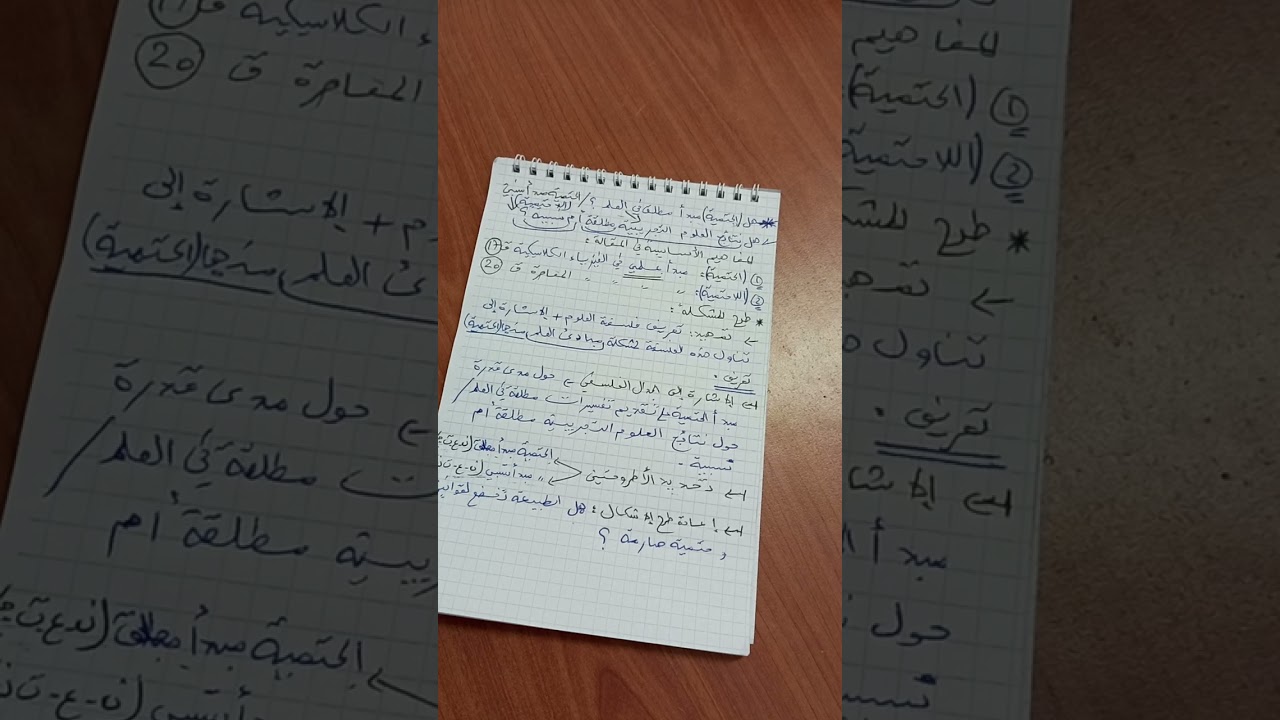 * هل (الحتمية) مبدأ مطلق في العلم ؟ / الحتمية مبدأ نسبي
(اللاحتمية)
← هل نتائج العلوم التجريبية مطلقة أم نسبية ؟
المفاهيم الأساسية في المقالة :
① (الحتمية): مبدأ علمي في الفيزياء الكلاسيكية ق ⑰
② (اللاحتمية): " " " " المعاصرة ق ⑳
* طرح المشكلة :
← تمهيد: تعريف فلسفة العلوم + الإشارة إلى
تناول هذه الفلسفة لمشكلة مبادئ العلم منها (الحتمية)
تعريف .
← الإشارة إلى الجدل الفلسفي ← حول مدى قدرة
مبدأ الحتمية على تقديم تفسيرات مطلقة في العلم /
حول نتائج العلوم التجريبية مطلقة أم
نسبية .
← تحديد الأطروحتين الحتمية مبدأ مطلق (ن ع ت
" مبدأ نسبي (ن - ع - ت
← إعادة طرح الإشكال : هل الطبيعة تخضع لقوانين
حتمية صارمة ؟